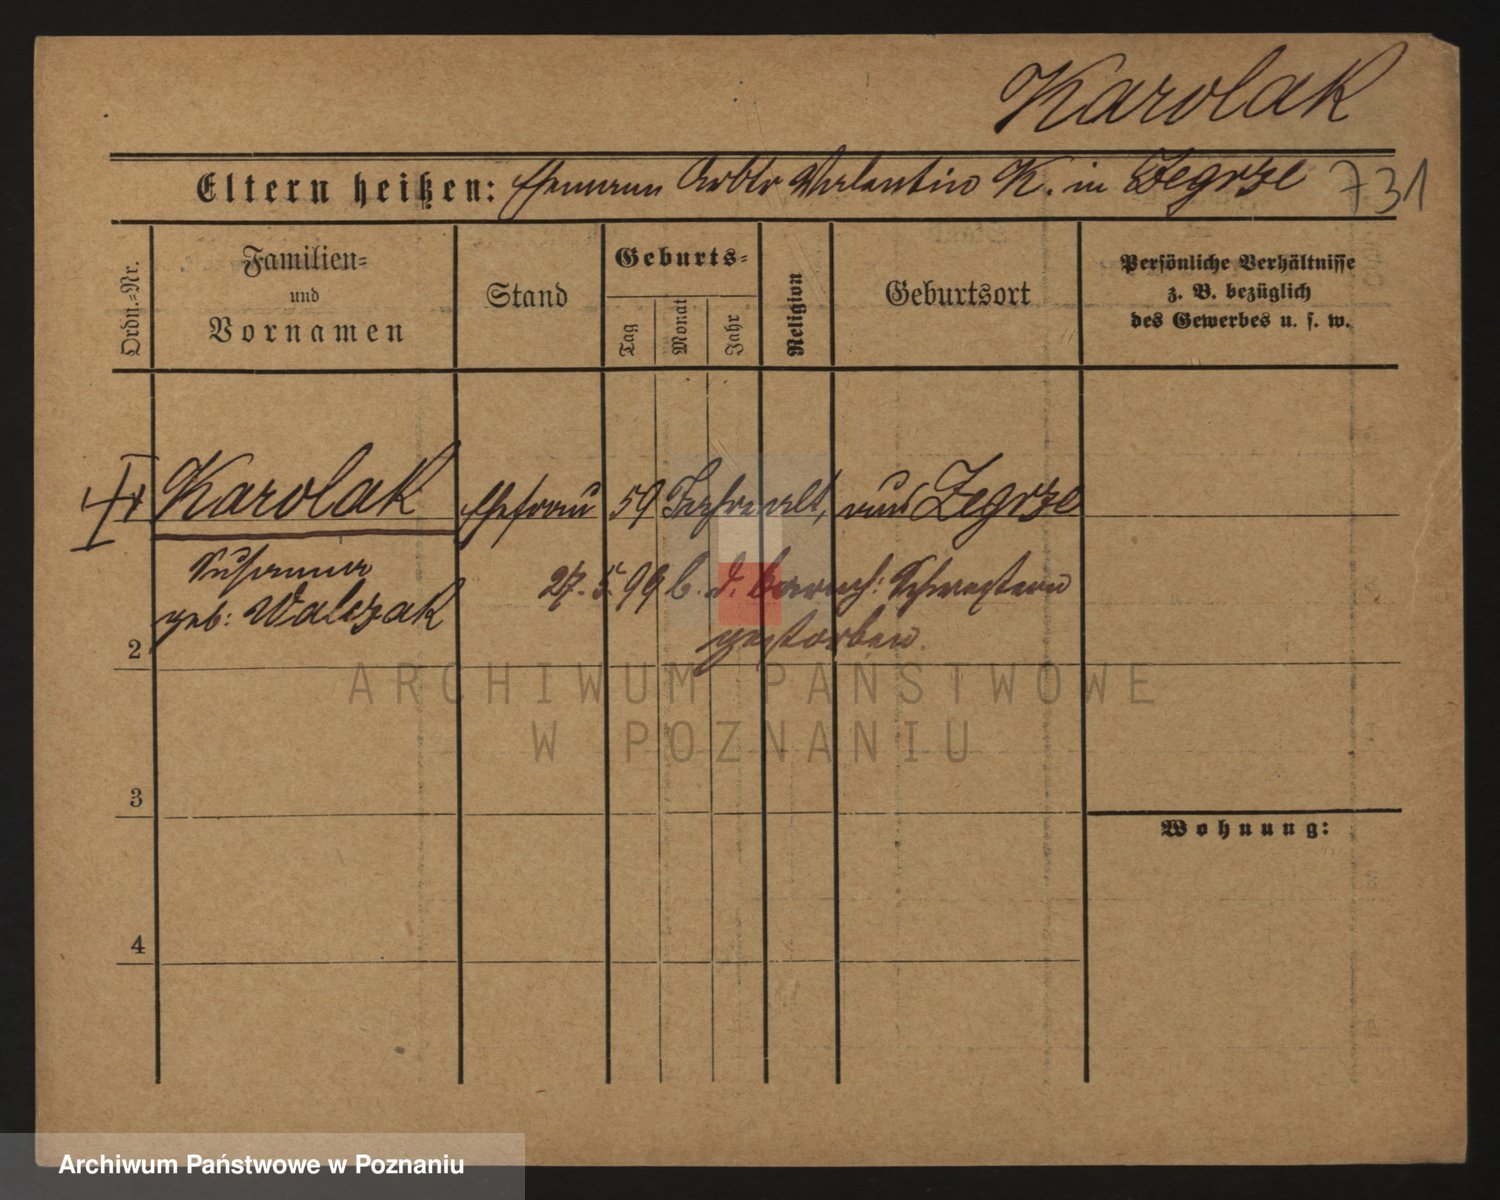 Karolak
Eltern heißen: Ehemann Arbtr Valentin K. in Zegrze 731
Ordn.-Nr.
Familien-
und
Vornamen
Stand
Geburts-
Tag
Monat
Jahr
Religion
Geburtsort
Persönliche Verhältnisse
z. B. bezüglich
des Gewerbes u. s. w.
Karolak Ehefrau 59 Jahre alt, aus Zegrze
Susanna
geb: Walczak
27.5.99 b. d. barmh: Schwestern
gestorben.
2
3
4
Wohnung:
ARCHIWUM PAŃSTWOWE
W POZNANIU
Archiwum Państwowe w Poznaniu